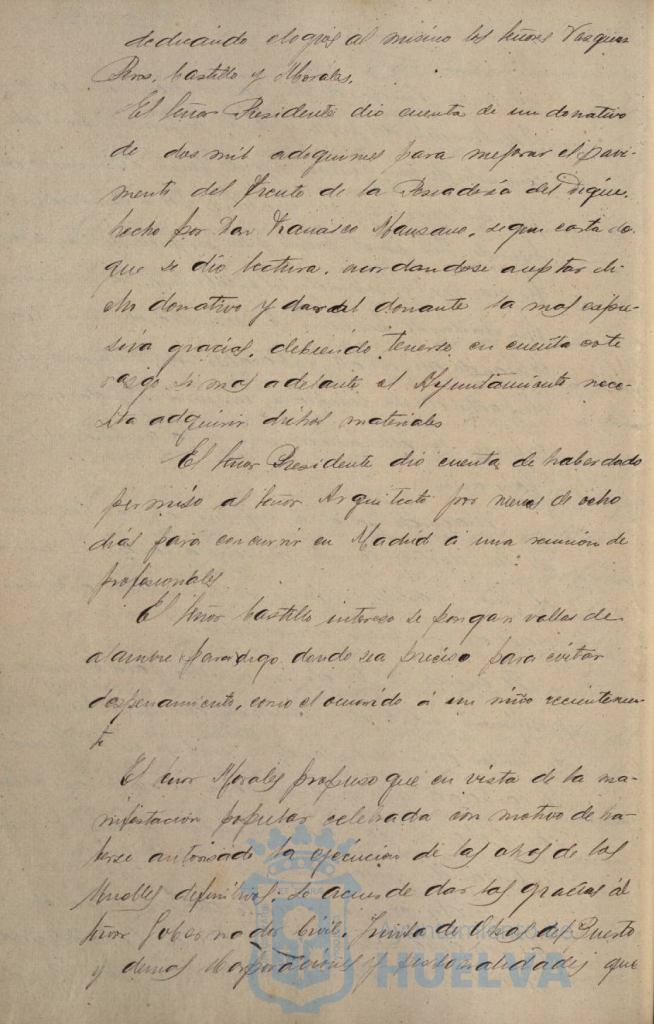 dedicando elogios al mismo los señores Vazquez
Pero, Castillo y Morales.
El señor Presidente dio cuenta de un donativo
de dos mil adoquines para mejorar el pavi-
mento del frente de la Pescaderia del Dique,
hecho por Don Francisco Manzano, segun carta de
que se dio lectura, acordandose aceptar di-
cho donativo y dar al donante la mas expre-
siva gracias, debiendo tenerse en cuenta este
rasgo si mas adelante el Ayuntamiento nece-
sita adquirir dichos materiales
El señor Presidente dio cuenta de haber dado
permiso al señor Arquitecto por menos de ocho
dias para concurrir en Madrid a una reunion de
profesionales
El señor Castillo intereso se pongan vallas de
alambre donde sea preciso para evitar
despeñamiento, como el ocurrido a un niño recientemen-
te
El señor Morales propuso que en vista de la ma-
nifestacion popular celebrada con motivo de ha-
berse autorisado la ejecucion de las obras de los
Muelles definitivos, se acuerde dar las gracias al
señor Gobernador Civil, Junta de Obras del Puerto
y demas Corporaciones y personalidades que
HUELVA